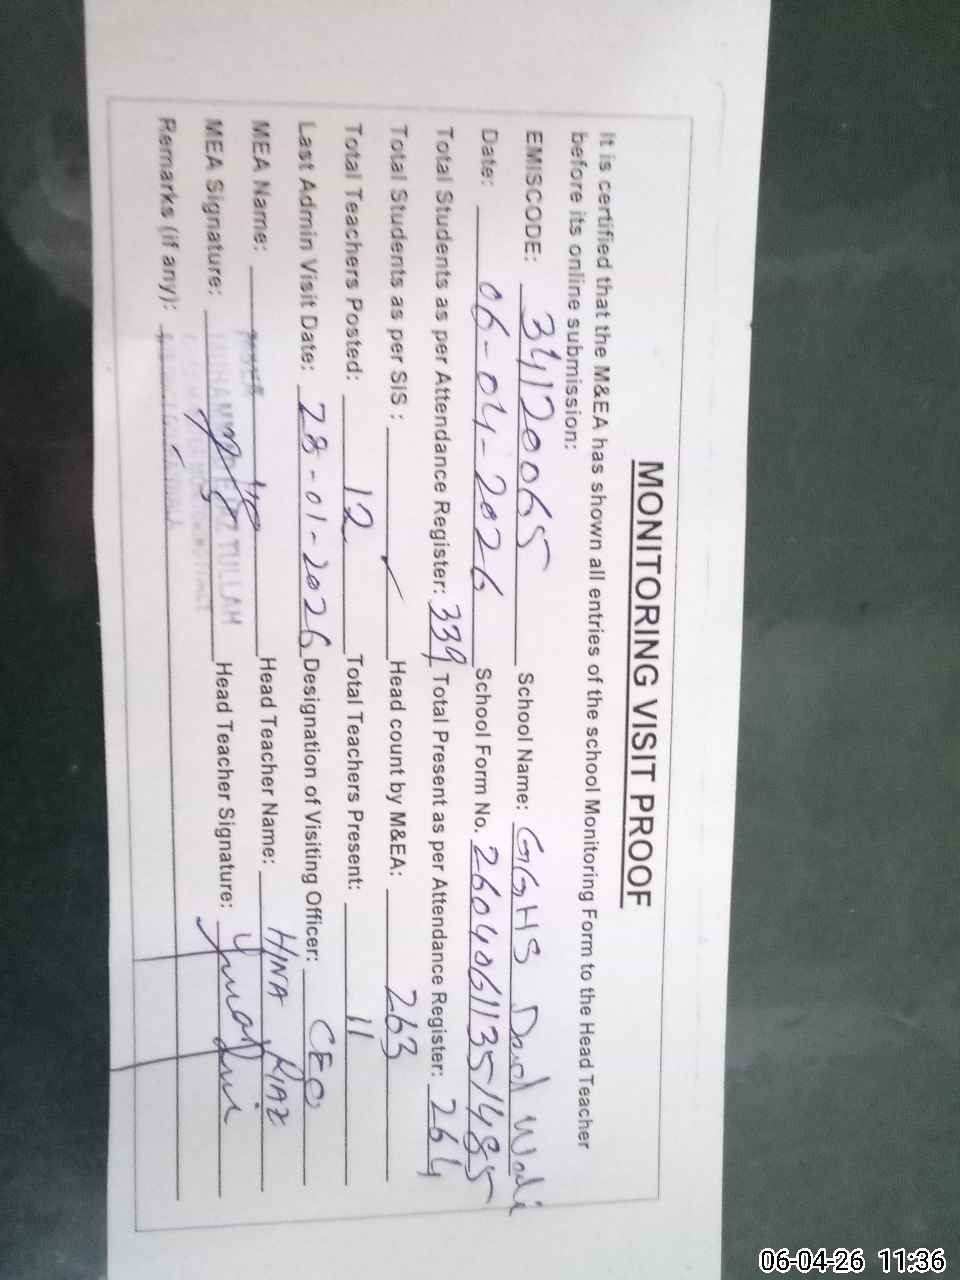 MONITORING VISIT PROOF
It is certified that the M&EA has shown all entries of the school Monitoring Form to the Head Teacher
before its online submission:
EMISCODE: 34120065 School Name: GGHS Daud Wali
Date: 06-04-2026 School Form No. 26040611351485
Total Students as per Attendance Register: 339 Total Present as per Attendance Register: 264
Total Students as per SIS : ✓ Head count by M&EA: 263
Total Teachers Posted: 12 Total Teachers Present: 11
Last Admin Visit Date: 28-01-2026 Designation of Visiting Officer: CEO
MEA Name: Head Teacher Name: HINA RIAZ
MEA Signature: TULLAH Head Teacher Signature:
Remarks (if any):
06-04-26 11:36